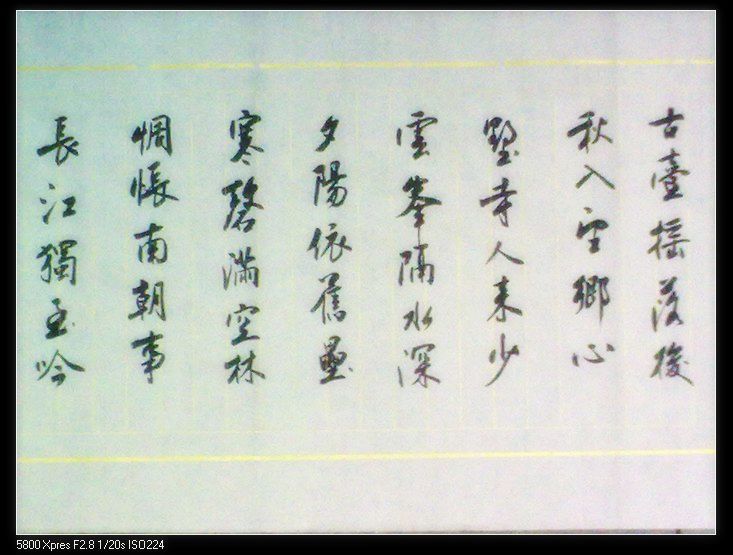 古臺搖落後
秋入望鄉心
墅寺人来少
雲峯隔水深
夕陽依舊壘
寒磬滿空林
惆悵南朝事
長江獨至吟
5800 Xpres F2.8 1/20s ISO224